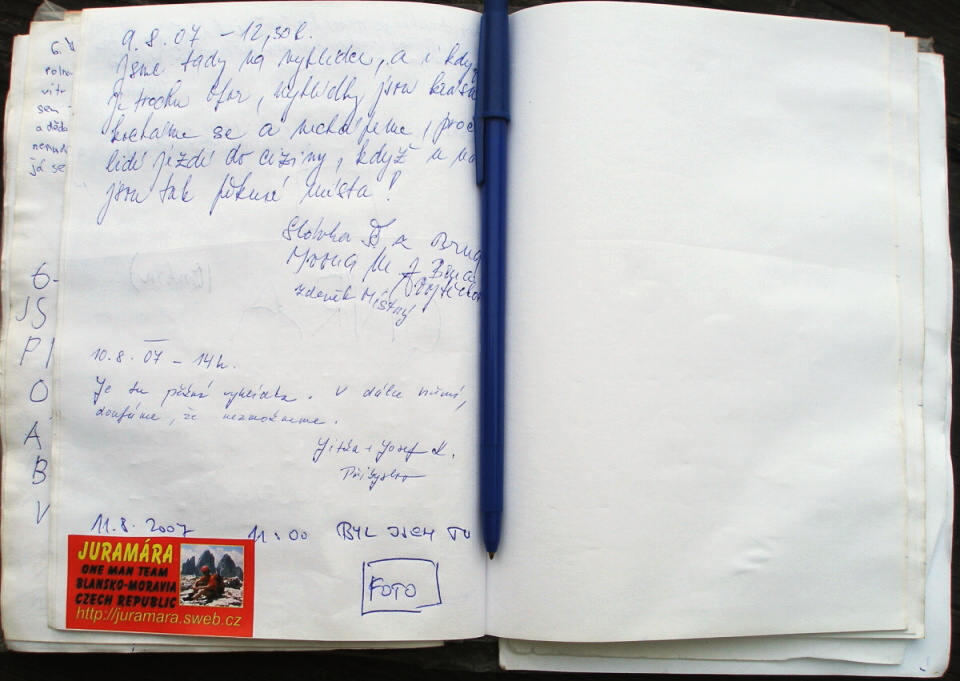 6.
polna
vítr
sem
a dědo
já se
6-
JS
P
O
Á
B
V
9.8.07 – 12,30h.
jsme tady na vyhlídce, a i když
je trochu opar, vyhlídky jsou krásn
kocháme se a nechápeme, proč
lidé jezdí do ciziny, když u ná
jsou tak pěkné místa!
z Brna
M.
Zdeněk Místný
10.8.07 – 14h.
Je tu pěkná vyhlídka. V dálce hřmí,
doufáme, že nezmokneme.
Jitka + Josef K.
Přibyslav
11.8.2007 11:00 BYL JSEM TU
FOTO
JURAMÁRA
ONE MAN TEAM
BLANSKO-MORAVIA
CZECH REPUBLIC
http://juramara.sweb.cz